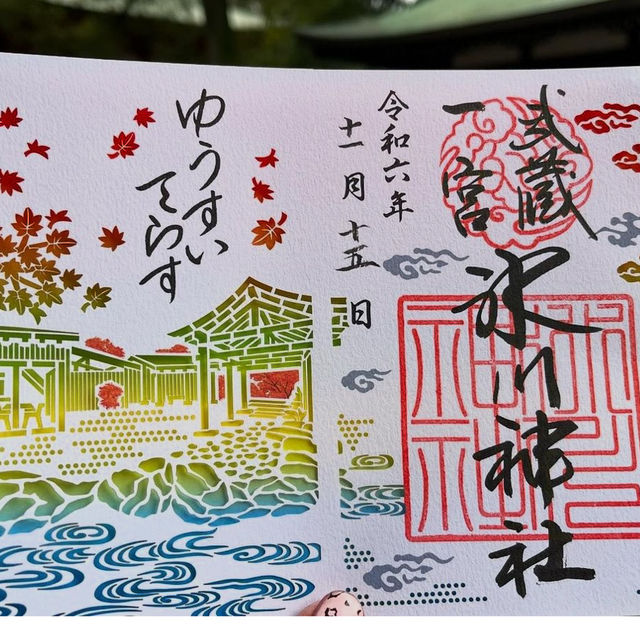 武蔵
一宮
氷川神社
令和六年
十一月十五日
ゆうすい
てらす
氷川
神社